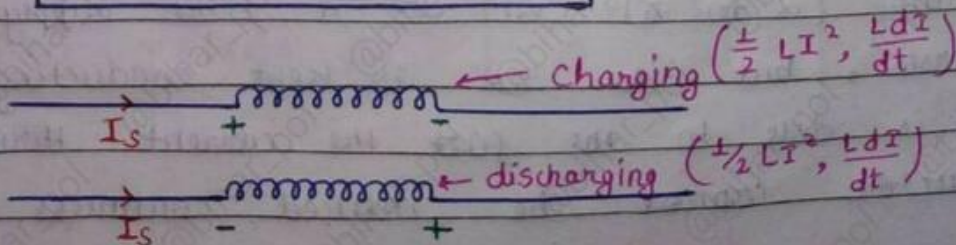 Changing (1/2 LI², LdI/dt)
I_S + -
discharging (1/2 LI², LdI/dt)
I_S - +